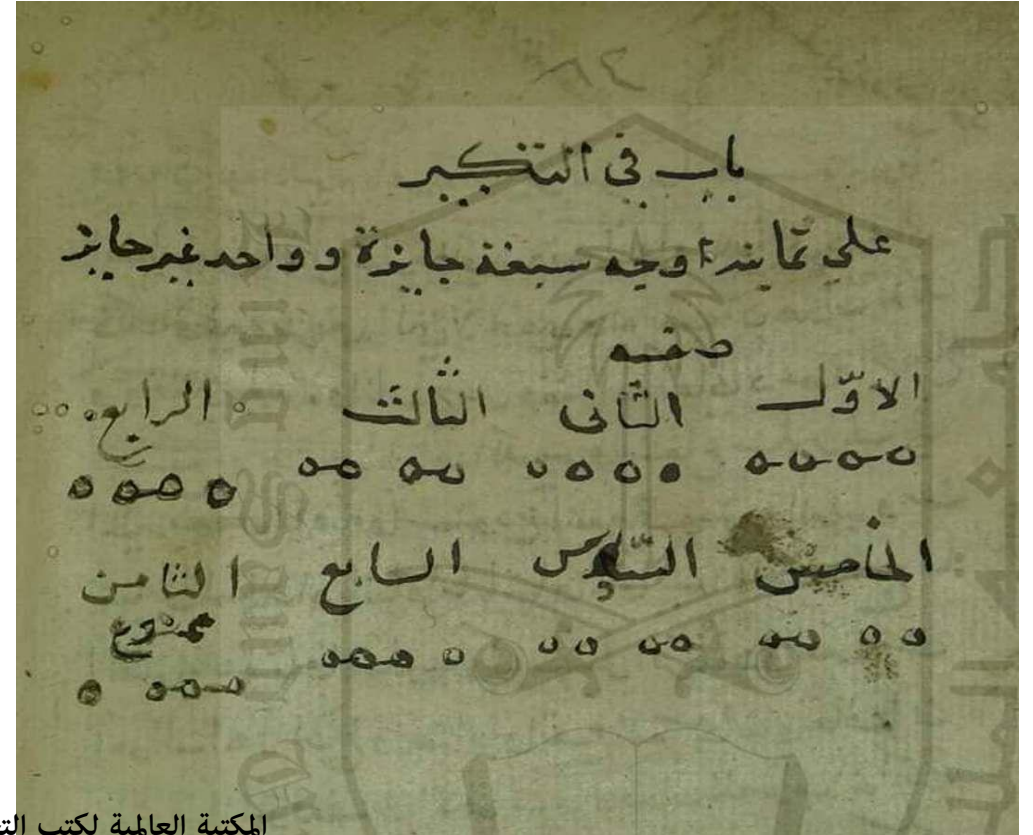 ٦٤
باب في التكبير
على ثمانية اوجه سبعة جايزة وواحد غير جايز
صفه
الاوّل الثّانى الثالث الرابع
الخامس السّادس السابع الثامن
ممنوع
المكتبة العالمية لكتب